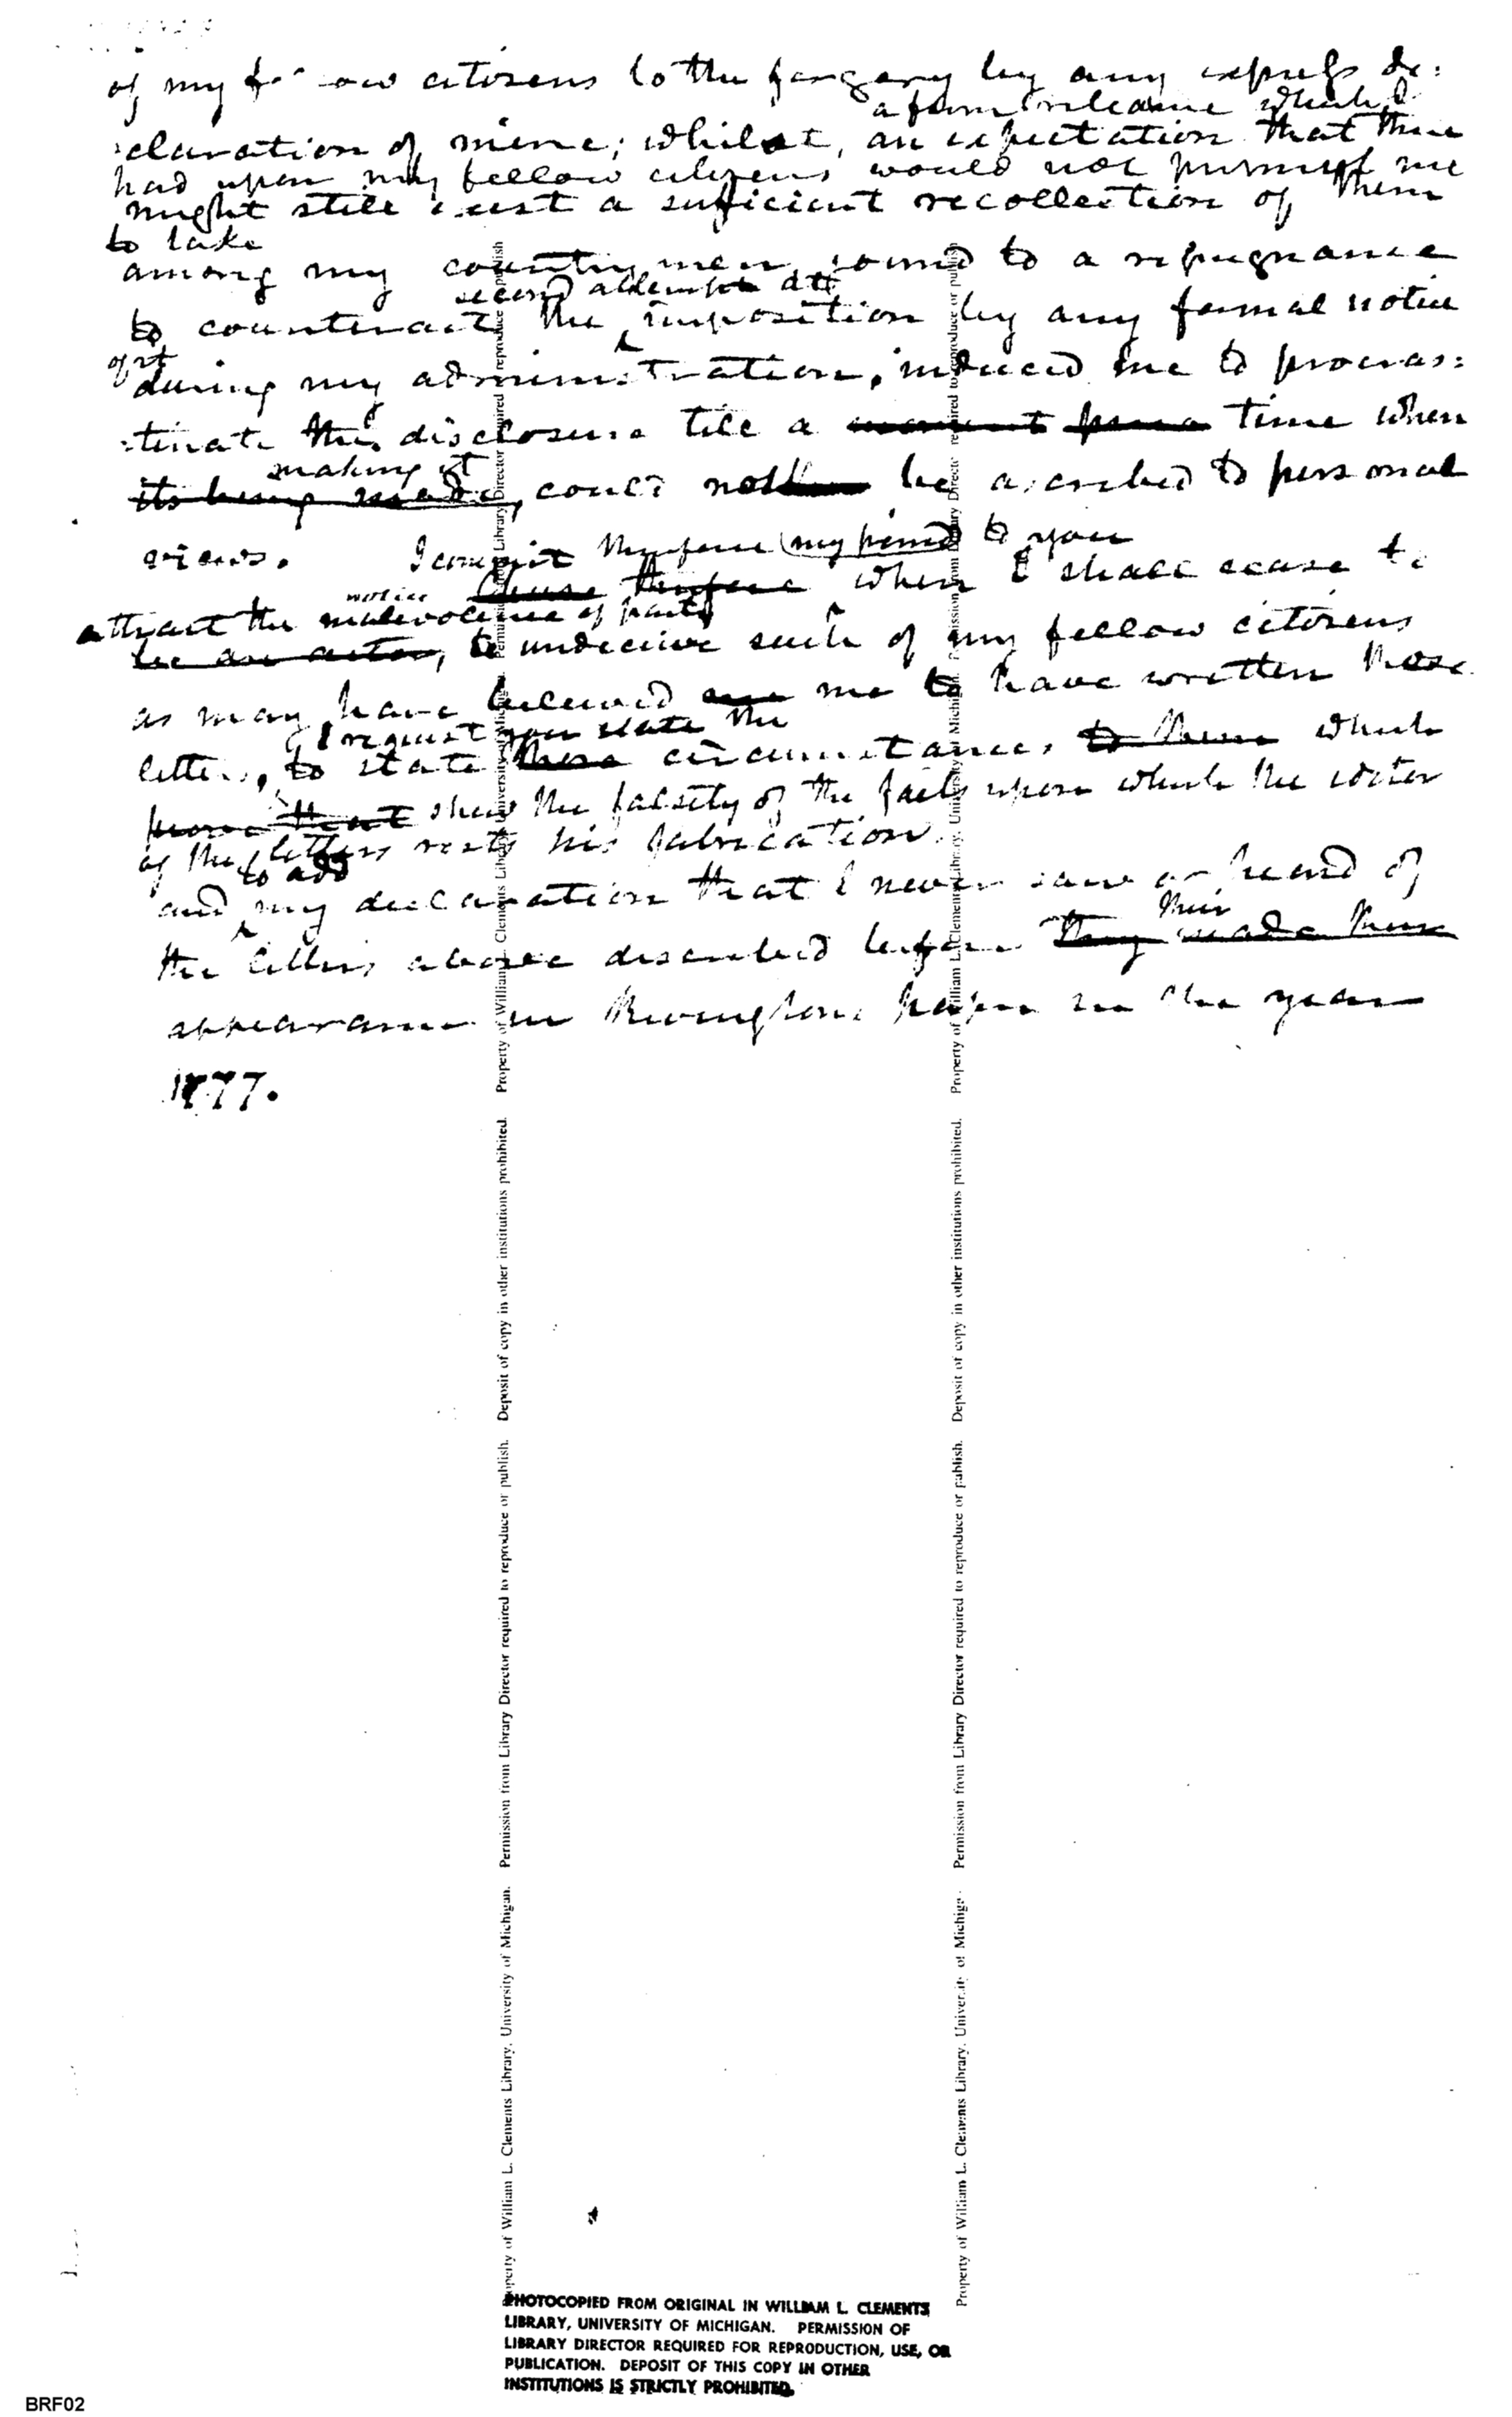 of my fellow citizens to the forgery by any express de:
a firm reliance which I
:claration of mine; whilst, an expectation that there
had upon my fellow citizens would not permit me
might still exist a sufficient recollection of them
to take
among my countrymen, joined to a repugnance
second attempt att
to counteract the imposition by any formal notice
of it
during my administration, induced me to procras:
:tinate this disclosure till a moment time when
making it
its being made, could not be ascribed to personal
views. I commit therefore (my friend) to you
notice therefore when I shall cease to
attract the malevolence of party
be an actor, to undeceive such of my fellow citizens
as may have believed me to have written these
I request you state the
letters, to state these circumstances to them which
prove that shew the falsity of the facts upon which the writer
of the letters rests his fabrication.
to add
and my declaration that I never saw or heard of
their
the letters above described before they made their
appearance in Rivingtons paper in the year
1777.
Property of William L. Clements Library, University of Michigan. Permission from Library Director required to reproduce or publish. Deposit of copy in other institutions prohibited. Property of William L. Clements Library, University of Michigan. Permission from Library Director required to reproduce or publish
Property of William L. Clements Library, University of Michigan. Permission from Library Director required to reproduce or publish. Deposit of copy in other institutions prohibited. Property of William L. Clements Library, University of Michigan. Permission from Library Director required to reproduce or publish
PHOTOCOPIED FROM ORIGINAL IN WILLIAM L. CLEMENTS
LIBRARY, UNIVERSITY OF MICHIGAN. PERMISSION OF
LIBRARY DIRECTOR REQUIRED FOR REPRODUCTION, USE, OR
PUBLICATION. DEPOSIT OF THIS COPY IN OTHER
INSTITUTIONS IS STRICTLY PROHIBITED.
BRF02